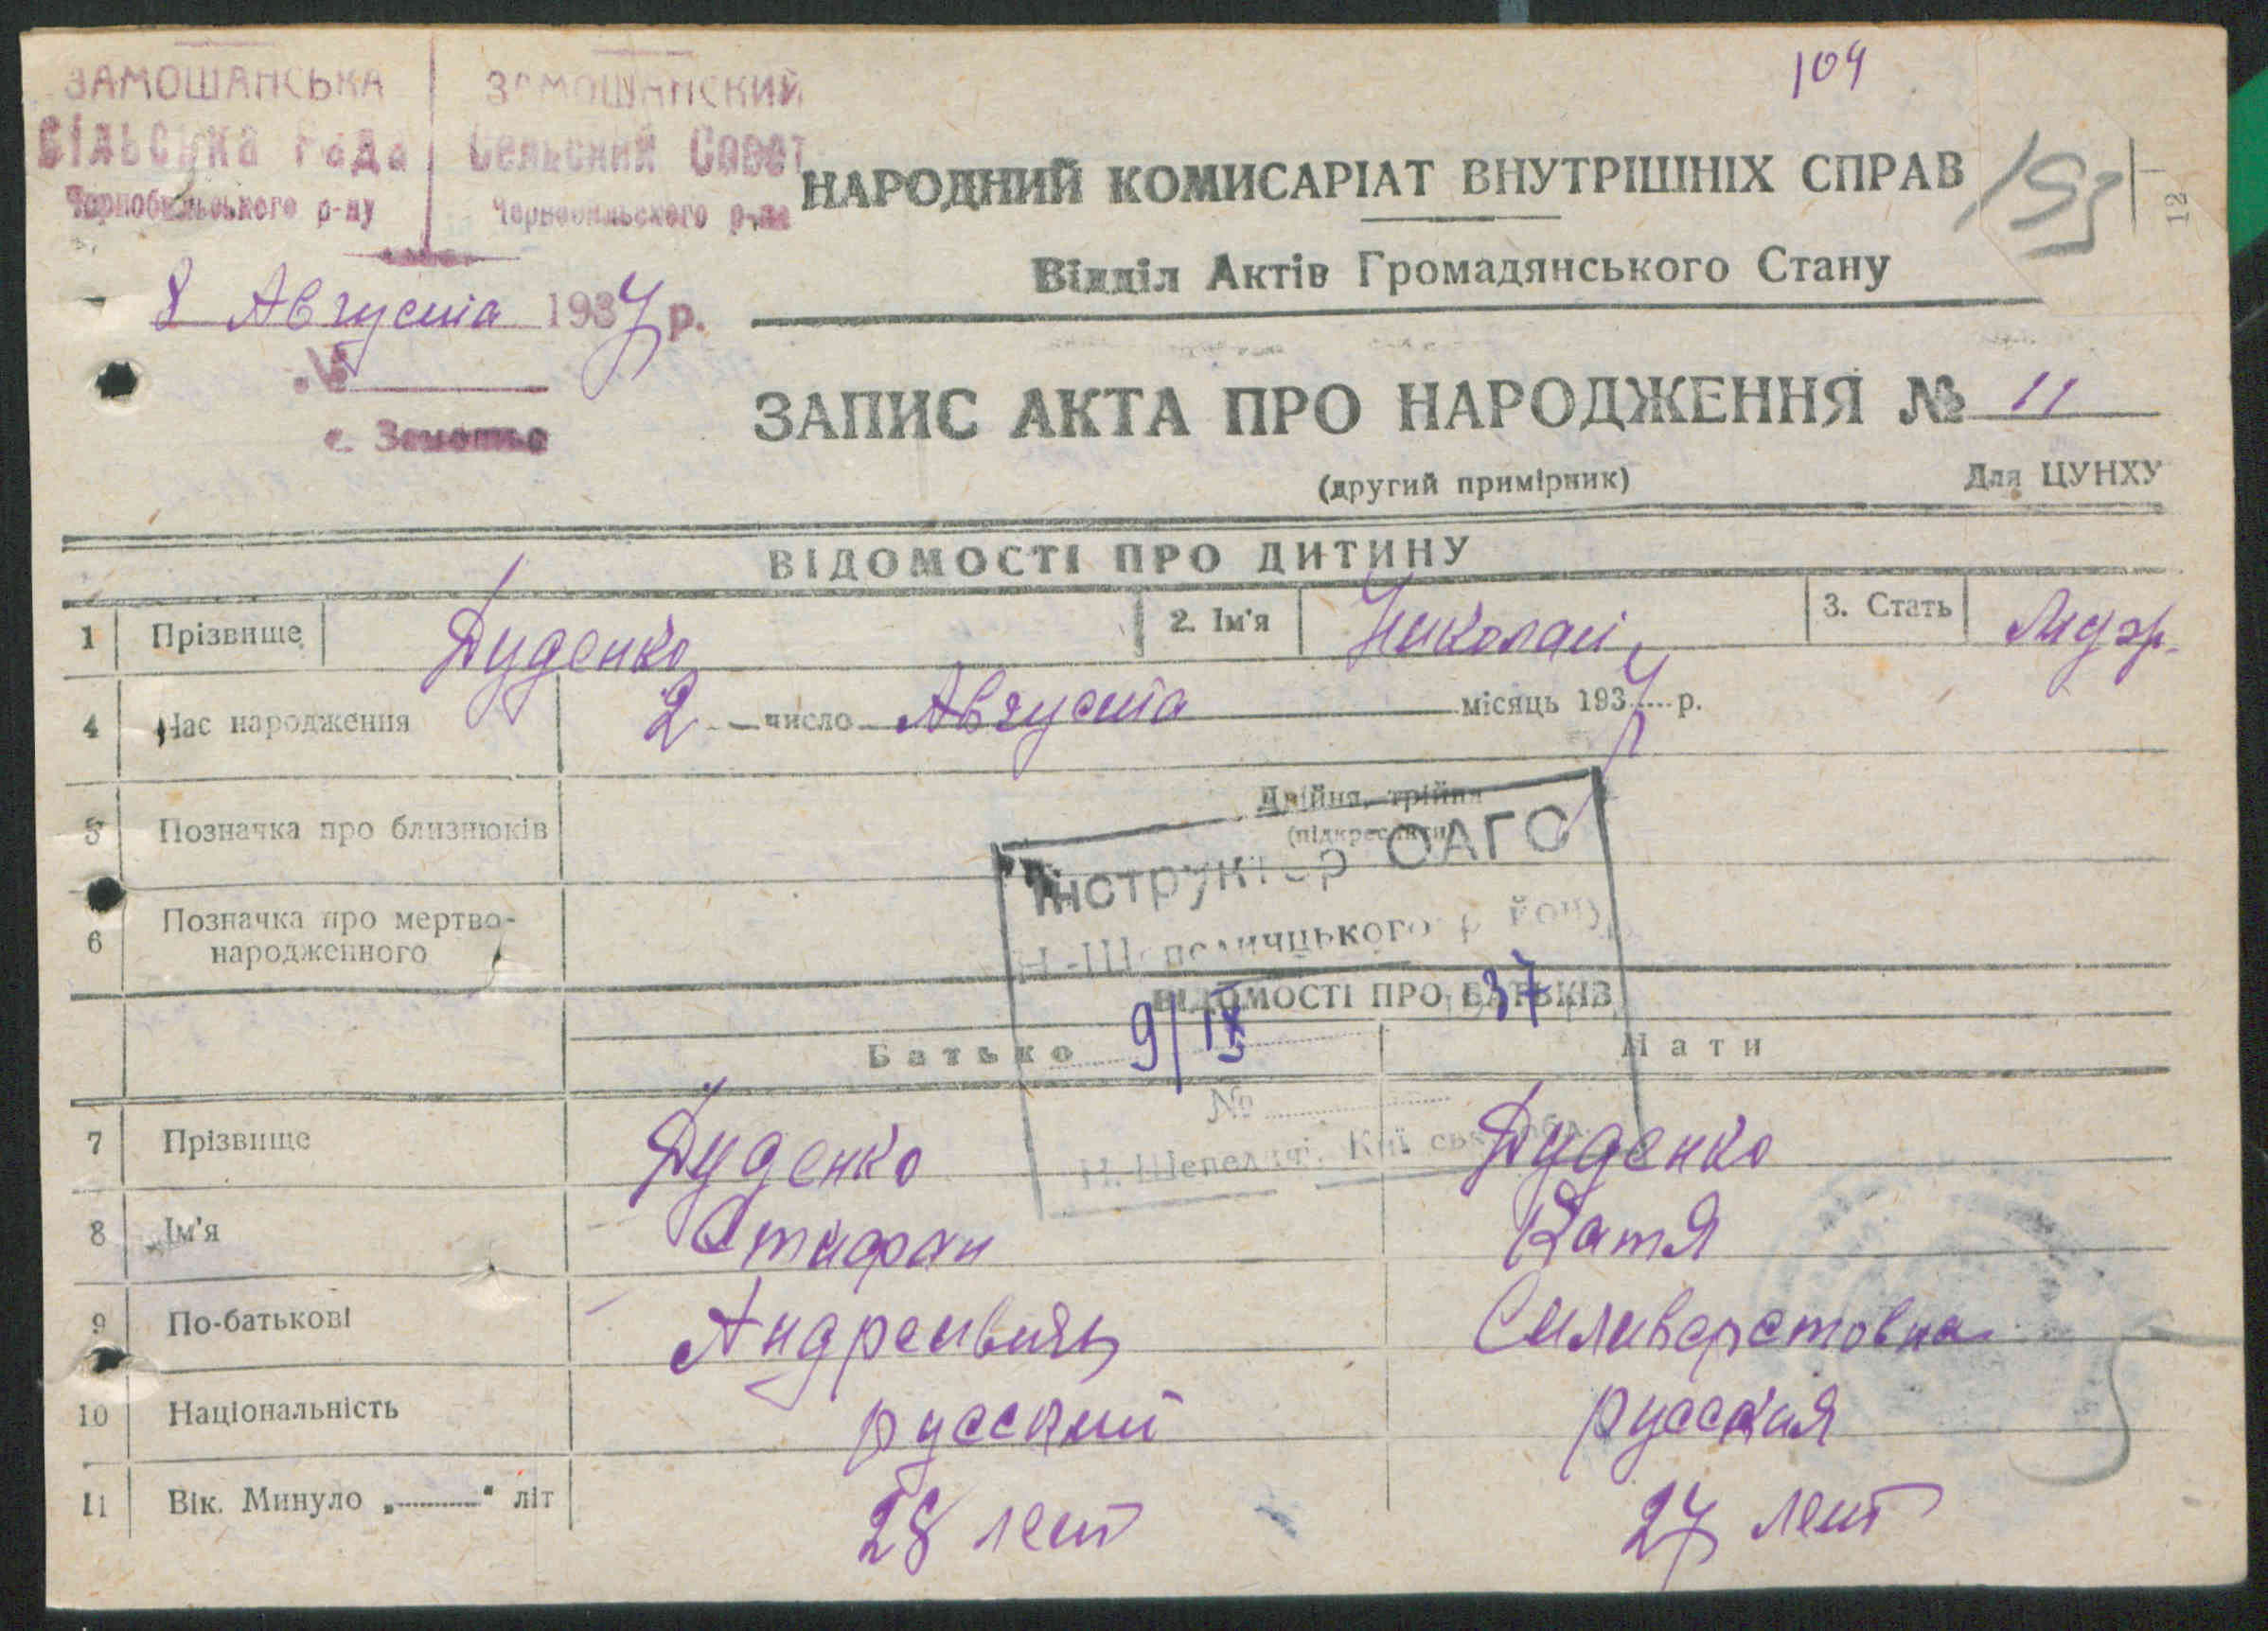 104
ЗАМОШАНСЬКА
Сільська Рада
Чорнобильського р-ну
ЗАМОШАНСКИЙ
Сельский Совет
Чернобильского р-на
8 Августа 1937 р.
№
с. Замошьо
НАРОДНИЙ КОМИСАРІАТ ВНУТРІШНІХ СПРАВ
153
12
Відділ Актів Громадянського Стану
ЗАПИС АКТА ПРО НАРОДЖЕННЯ № 11
(другий примірник)
Для ЦУНХУ
ВІДОМОСТІ ПРО ДИТИНУ
1 Прізвище Дуденко 2. Ім'я Николай 3. Стать Муж.
4 Час народження 2 число Августа місяць 1937 р.
5 Позначка про близнюків Двійня, трійня
(підкреслити)
Інструктор ОАГС
Н-Шепеличцького району
6 Позначка про мертво-
народженного
ВІДОМОСТІ ПРО БАТЬКІВ
9/IX 37
Батько Мати
№
7 Прізвище Дуденко Дуденко
Н. Шепеличі, Київської обл.
8 Ім'я Стифан Катя
9 По-батькові Андреивичь Силиверстовна
10 Національність русский русская
11 Вік. Минуло „ " літ 28 лет 27 лет